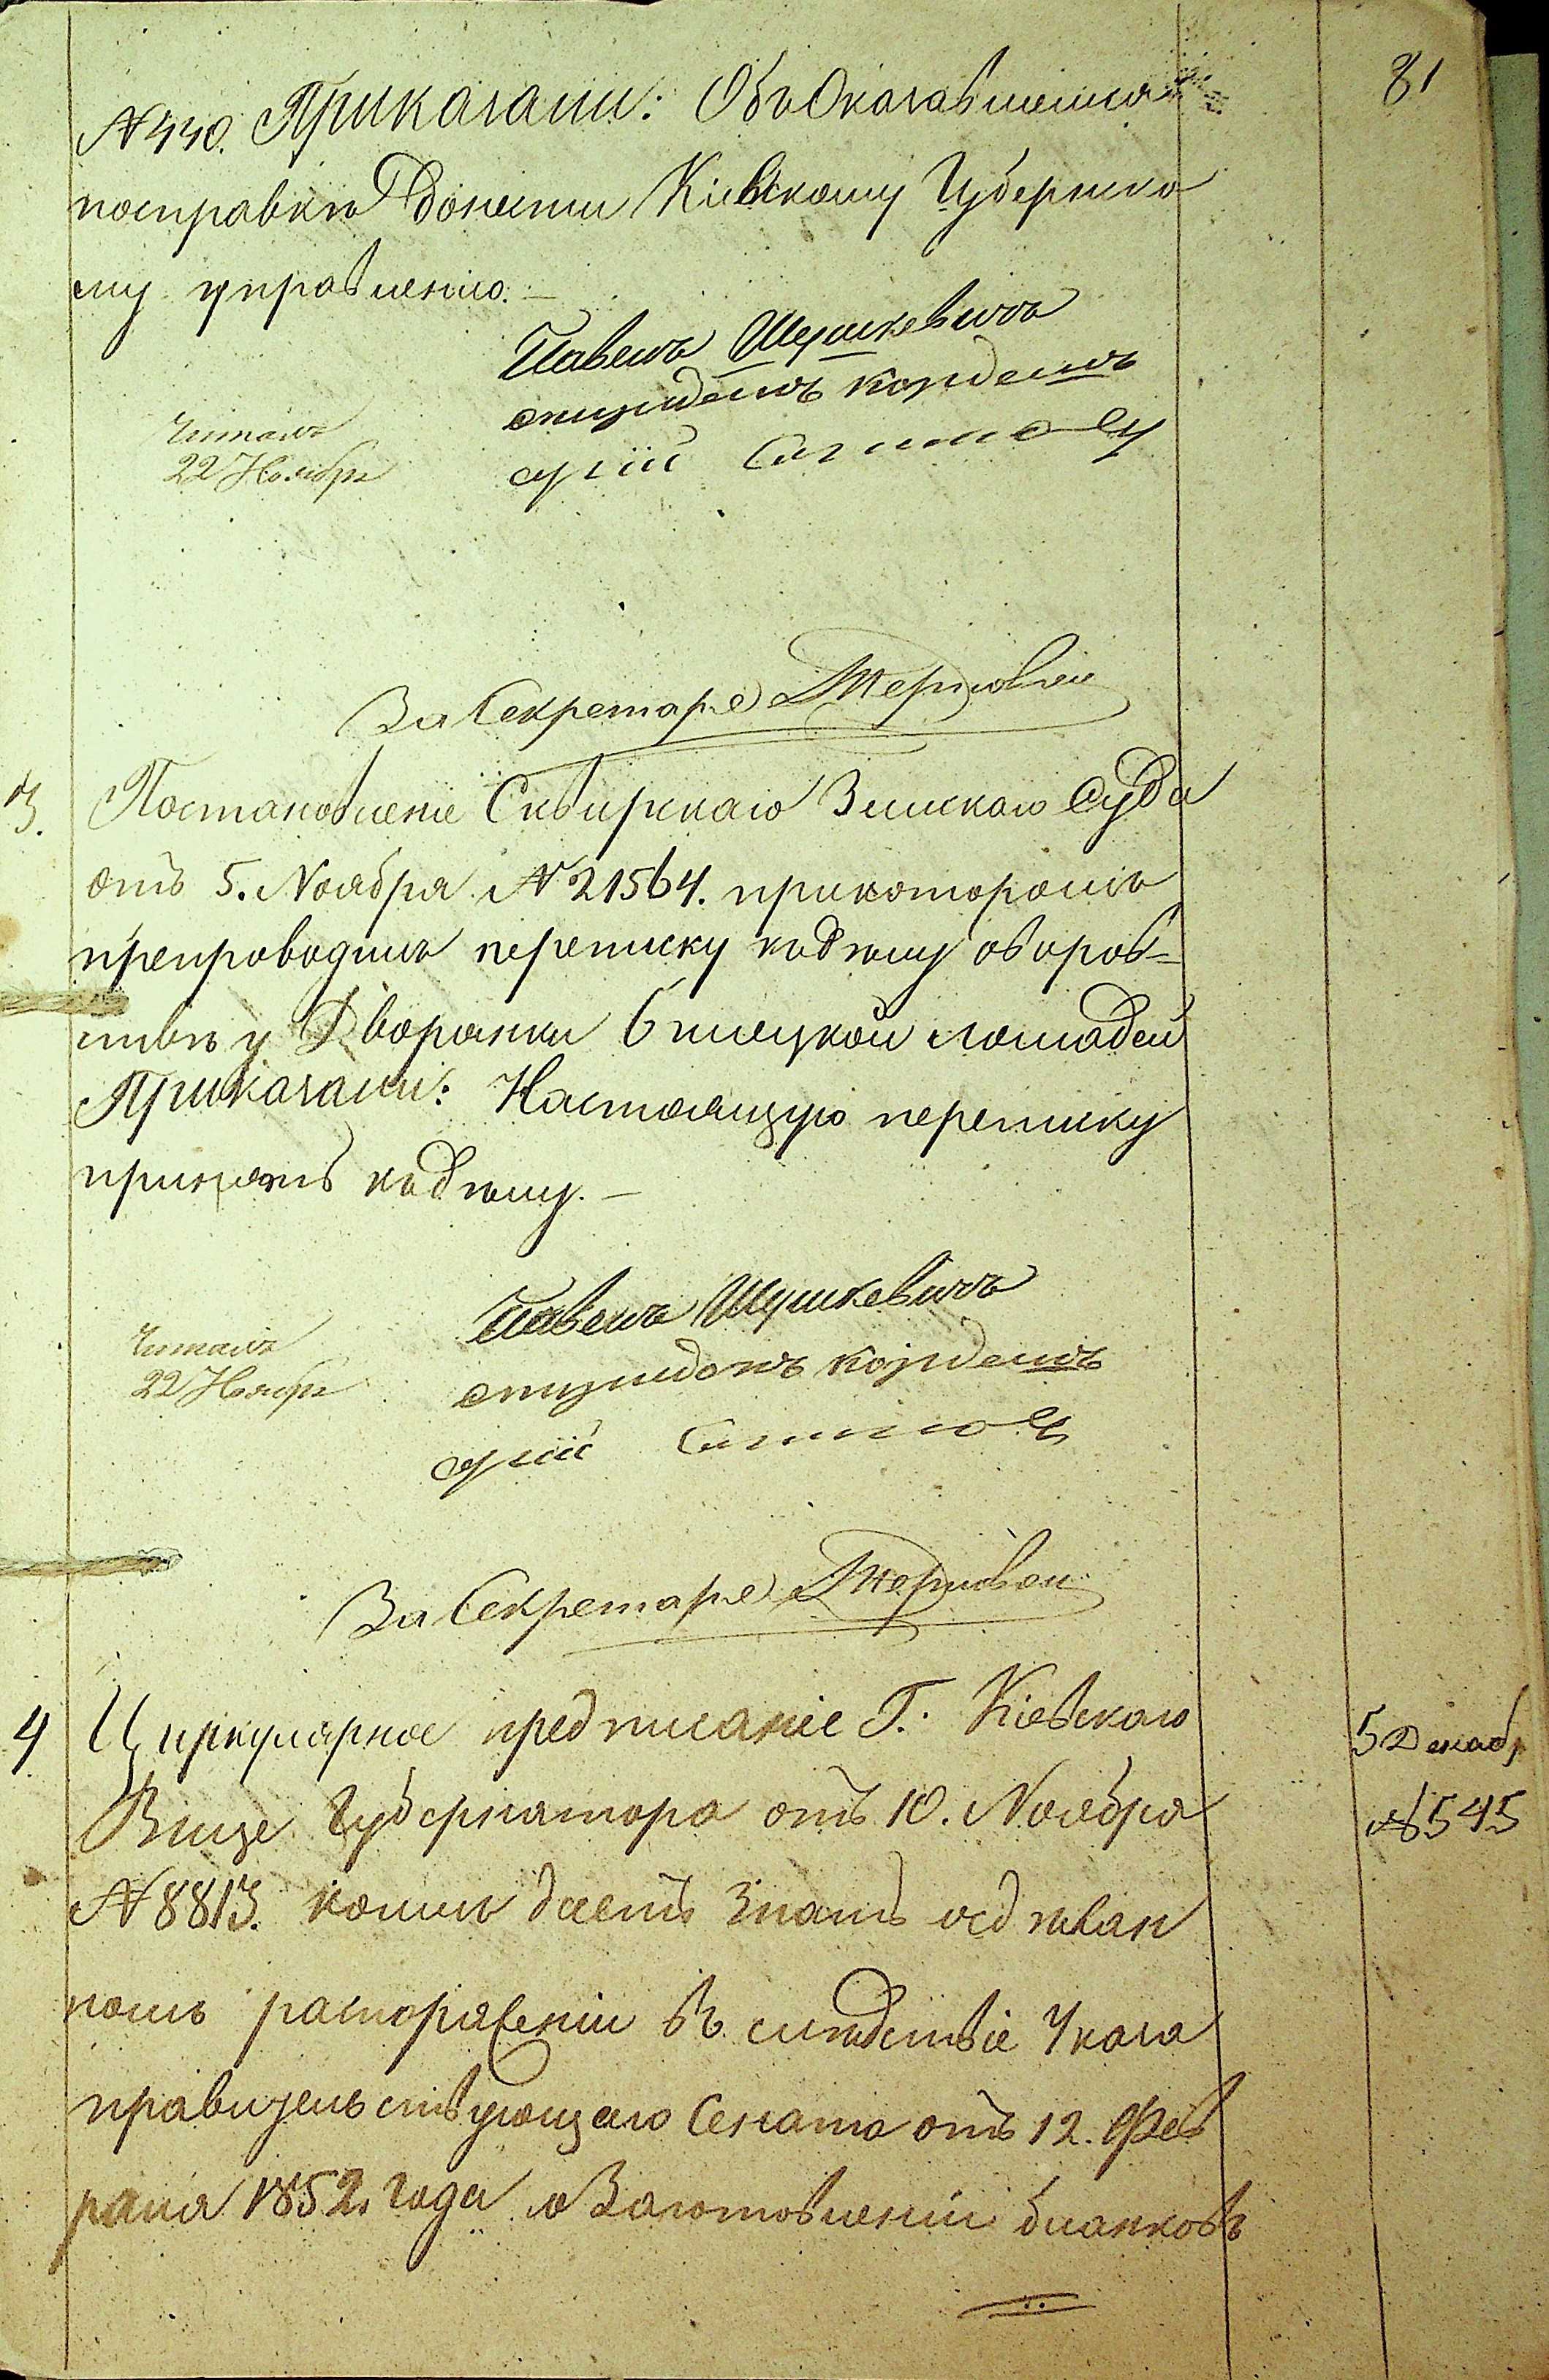 81
№ 440. Приказали: Объ Оказавшемся
посправкѣ донести Кіевскому Губернско
му управленію. —
Павелъ Шушкевичъ
Читалъ
22 Ноября
За Секретаря Терновскій
3. Постановленіе Сквирскаго Земскаго Суда
отъ 5. Ноября № 21564. прикоторомъ
препроводилъ переписку кадѣлу оворов=
ствѣ у Дворянки лошадей
Приказали: Настоящую переписку
принять кадѣлу. —
Павелъ Шушкевичъ
Читалъ
22 Ноября
За Секретаря Терновскій
4 Циркулярное предписаніе Г. Кіевскаго
5 Декабр
Вице Губернатора отъ 10. Ноября
№ 545
№ 8813. коимъ даетъ знать осдѣлан
номъ распоряженіи въ слѣдствіе Указа
правительствующаго Сената отъ 12. Фев
раля 1852. года о Заготовленіи бланковъ